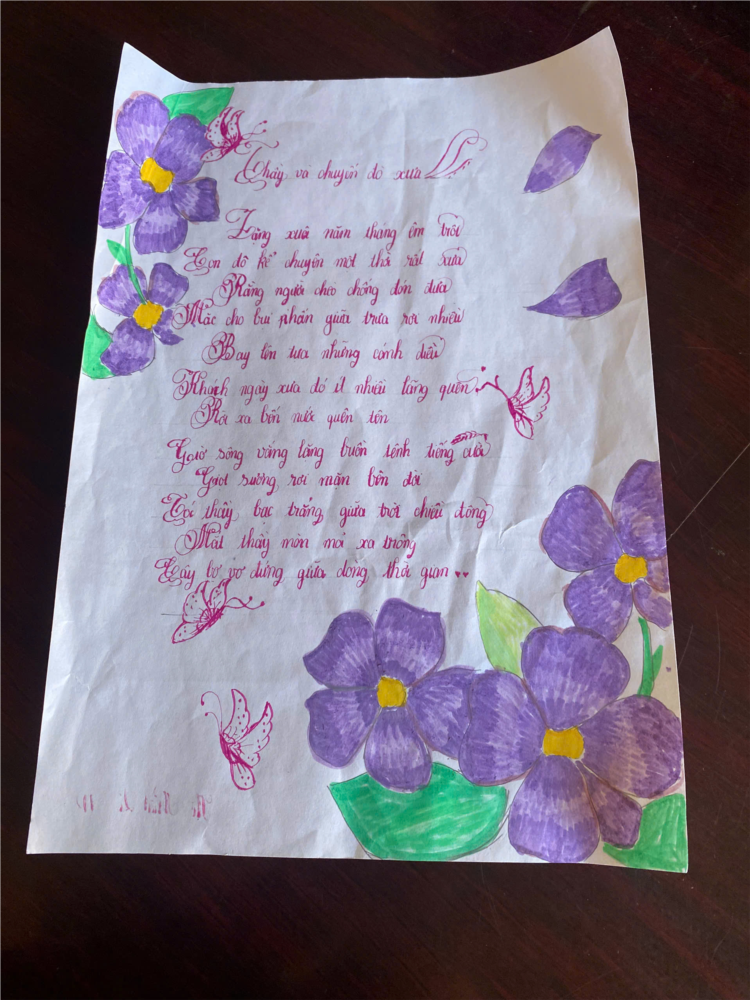 Thầy và chuyến đò xưa
Lặng xuôi năm tháng êm trôi
Con đò kể chuyện một thời rất xưa
Rằng người chèo chống đón đưa
Mặc cho bụi phấn giữa trưa rơi nhiều
Bay lên tựa những cánh diều
Khách ngày xưa đó ít nhiều lãng quên
Rời xa bến nước quên tên
Giờ sông vắng lặng buồn tênh tiếng cười
Giọt sương rơi mặn bên đời
Tóc thầy bạc trắng giữa trời chiều đông
Mắt thầy mòn mỏi xa trông
Cây bơ vơ đứng giữa dòng thời gian